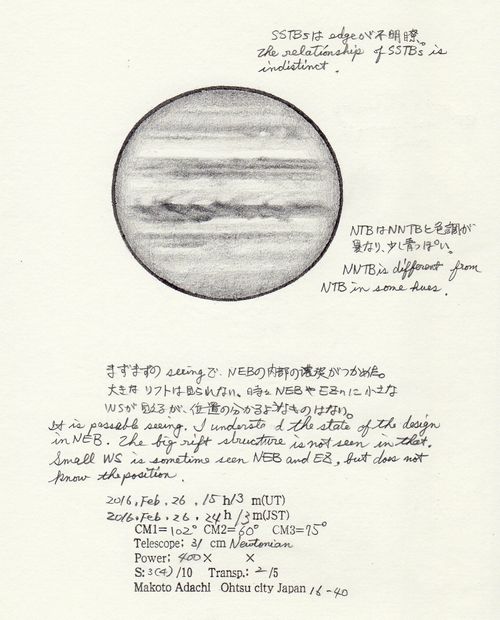 SSTBsは edgeが不明瞭。
the relationship of SSTBs is
indistinct.
NTBはNNTBと色調が
異なり、少し青っぽい。
NNTB is different from
NTB in some hues.
まずまずの seeingで、NEBの内部の濃淡がつかめた。
大きな リフトは見られない。時々 NEBや EZnに 小さな
WSが 見えるが、位置の分かるようなものはない。
It is passable seeing. I understand the state of the design
in NEB. The big rift structure is not seen in that.
Small WS is sometime seen NEB and EZ, but does not
know the position.
2016. Feb. 26. 15 h 13 m(UT)
2016. Feb. 26. 24 h 13 m(JST)
CM1= 102° CM2= 60° CM3= 75°
Telescope: 31 cm Newtonian
Power: 400 × ×
S: 3(4) /10 Transp.: 2 /5
Makoto Adachi Ohtsu city Japan 16-40